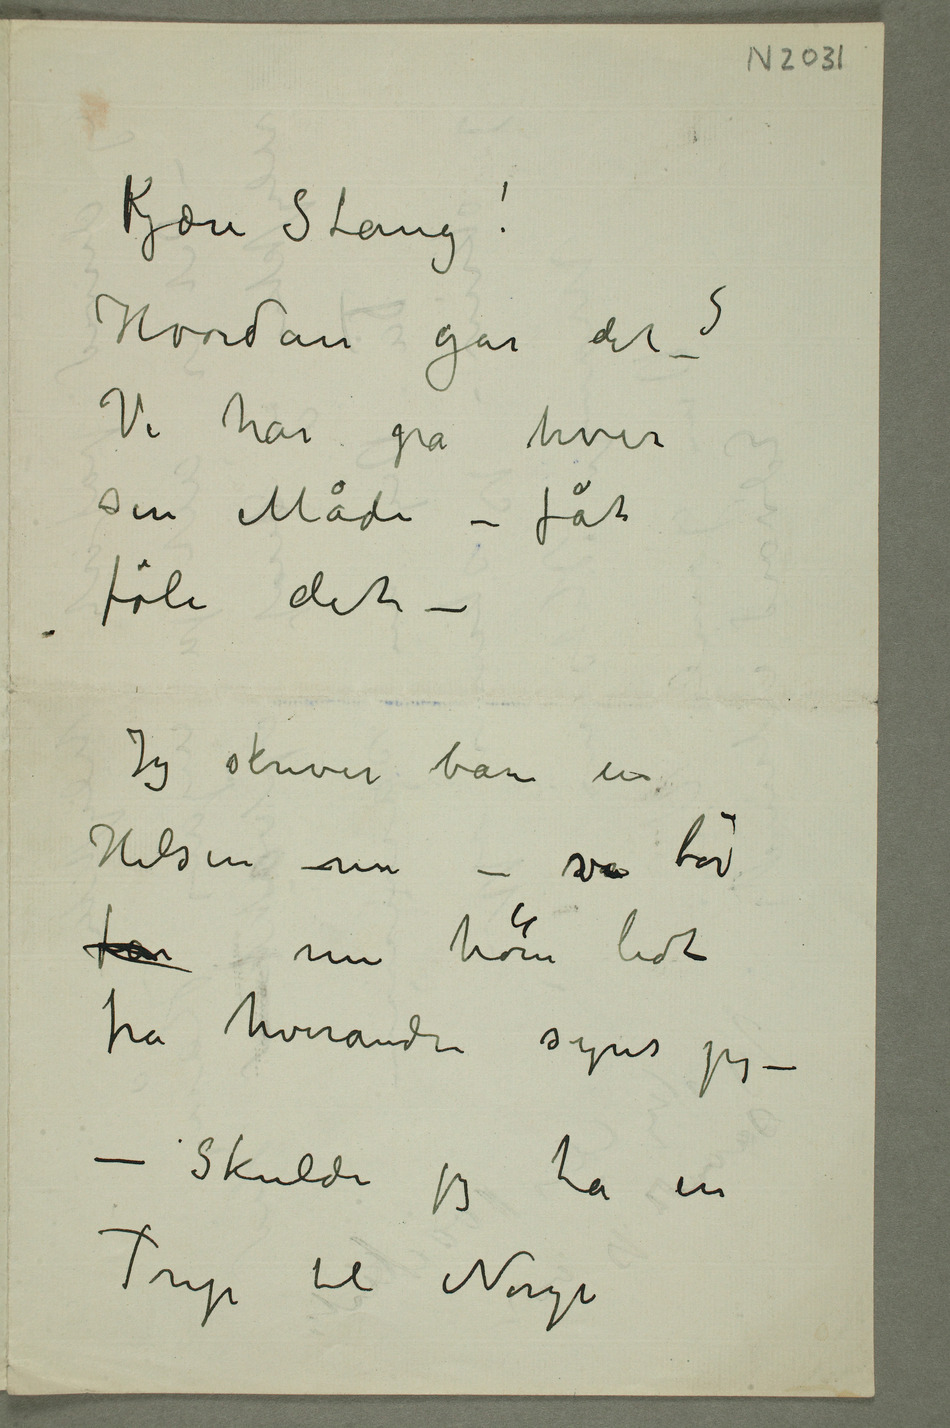 N 2031
Kjære Stang!
Hvordan går det –?
Vi har på hver
sin Måde – fåt
føle det –
Jeg skriver bare en
Hilsen nu – så bør
nu høre lidt
fra hverandre synes jeg –
– Skulde jeg ta en
Trip til Norge